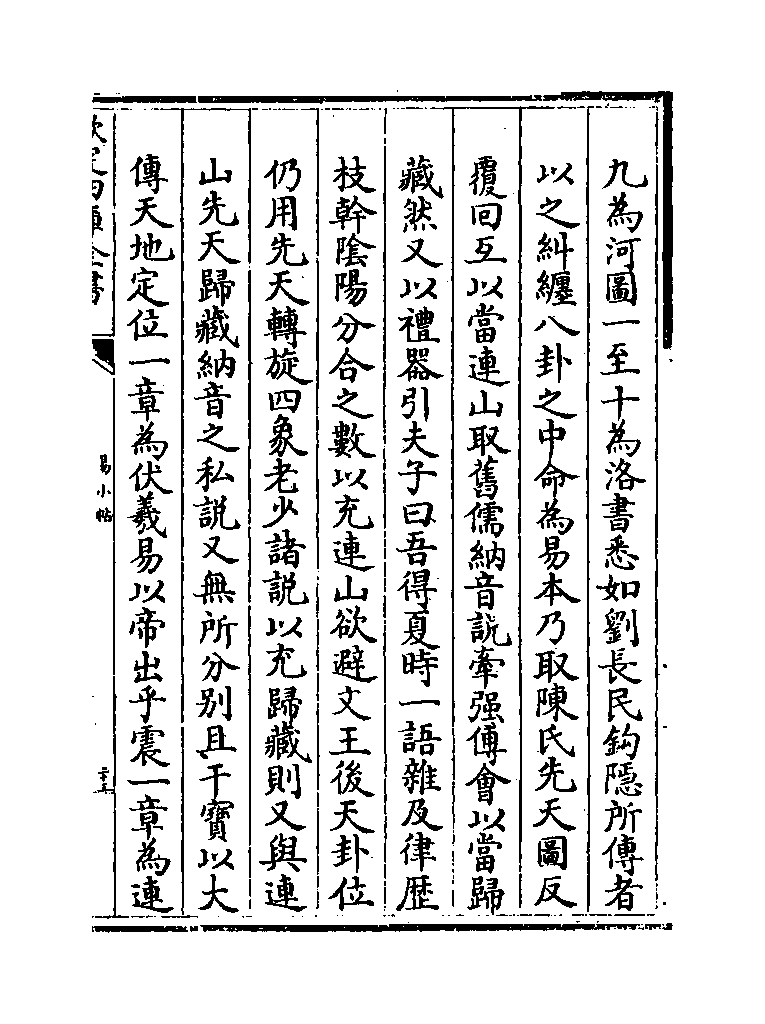 九為河圖一至十為洛書悉如劉長民鈎隱所傳者
以之糾纏八卦之中命為易本乃取陳氏先天圖反
覆回互以當連山取舊儒納音說牽强傅會以當歸
藏然又以禮器引夫子曰吾得夏時一語雜及律歴
枝幹陰陽分合之數以充連山欲避文王後天卦位
仍用先天轉旋四象老少諸説以充歸藏則又與連
山先天歸藏納音之私説又無所分别且干寶以大
傳天地定位一章為伏羲易以帝出乎震一章為連
欽定四庫全書
易小帖